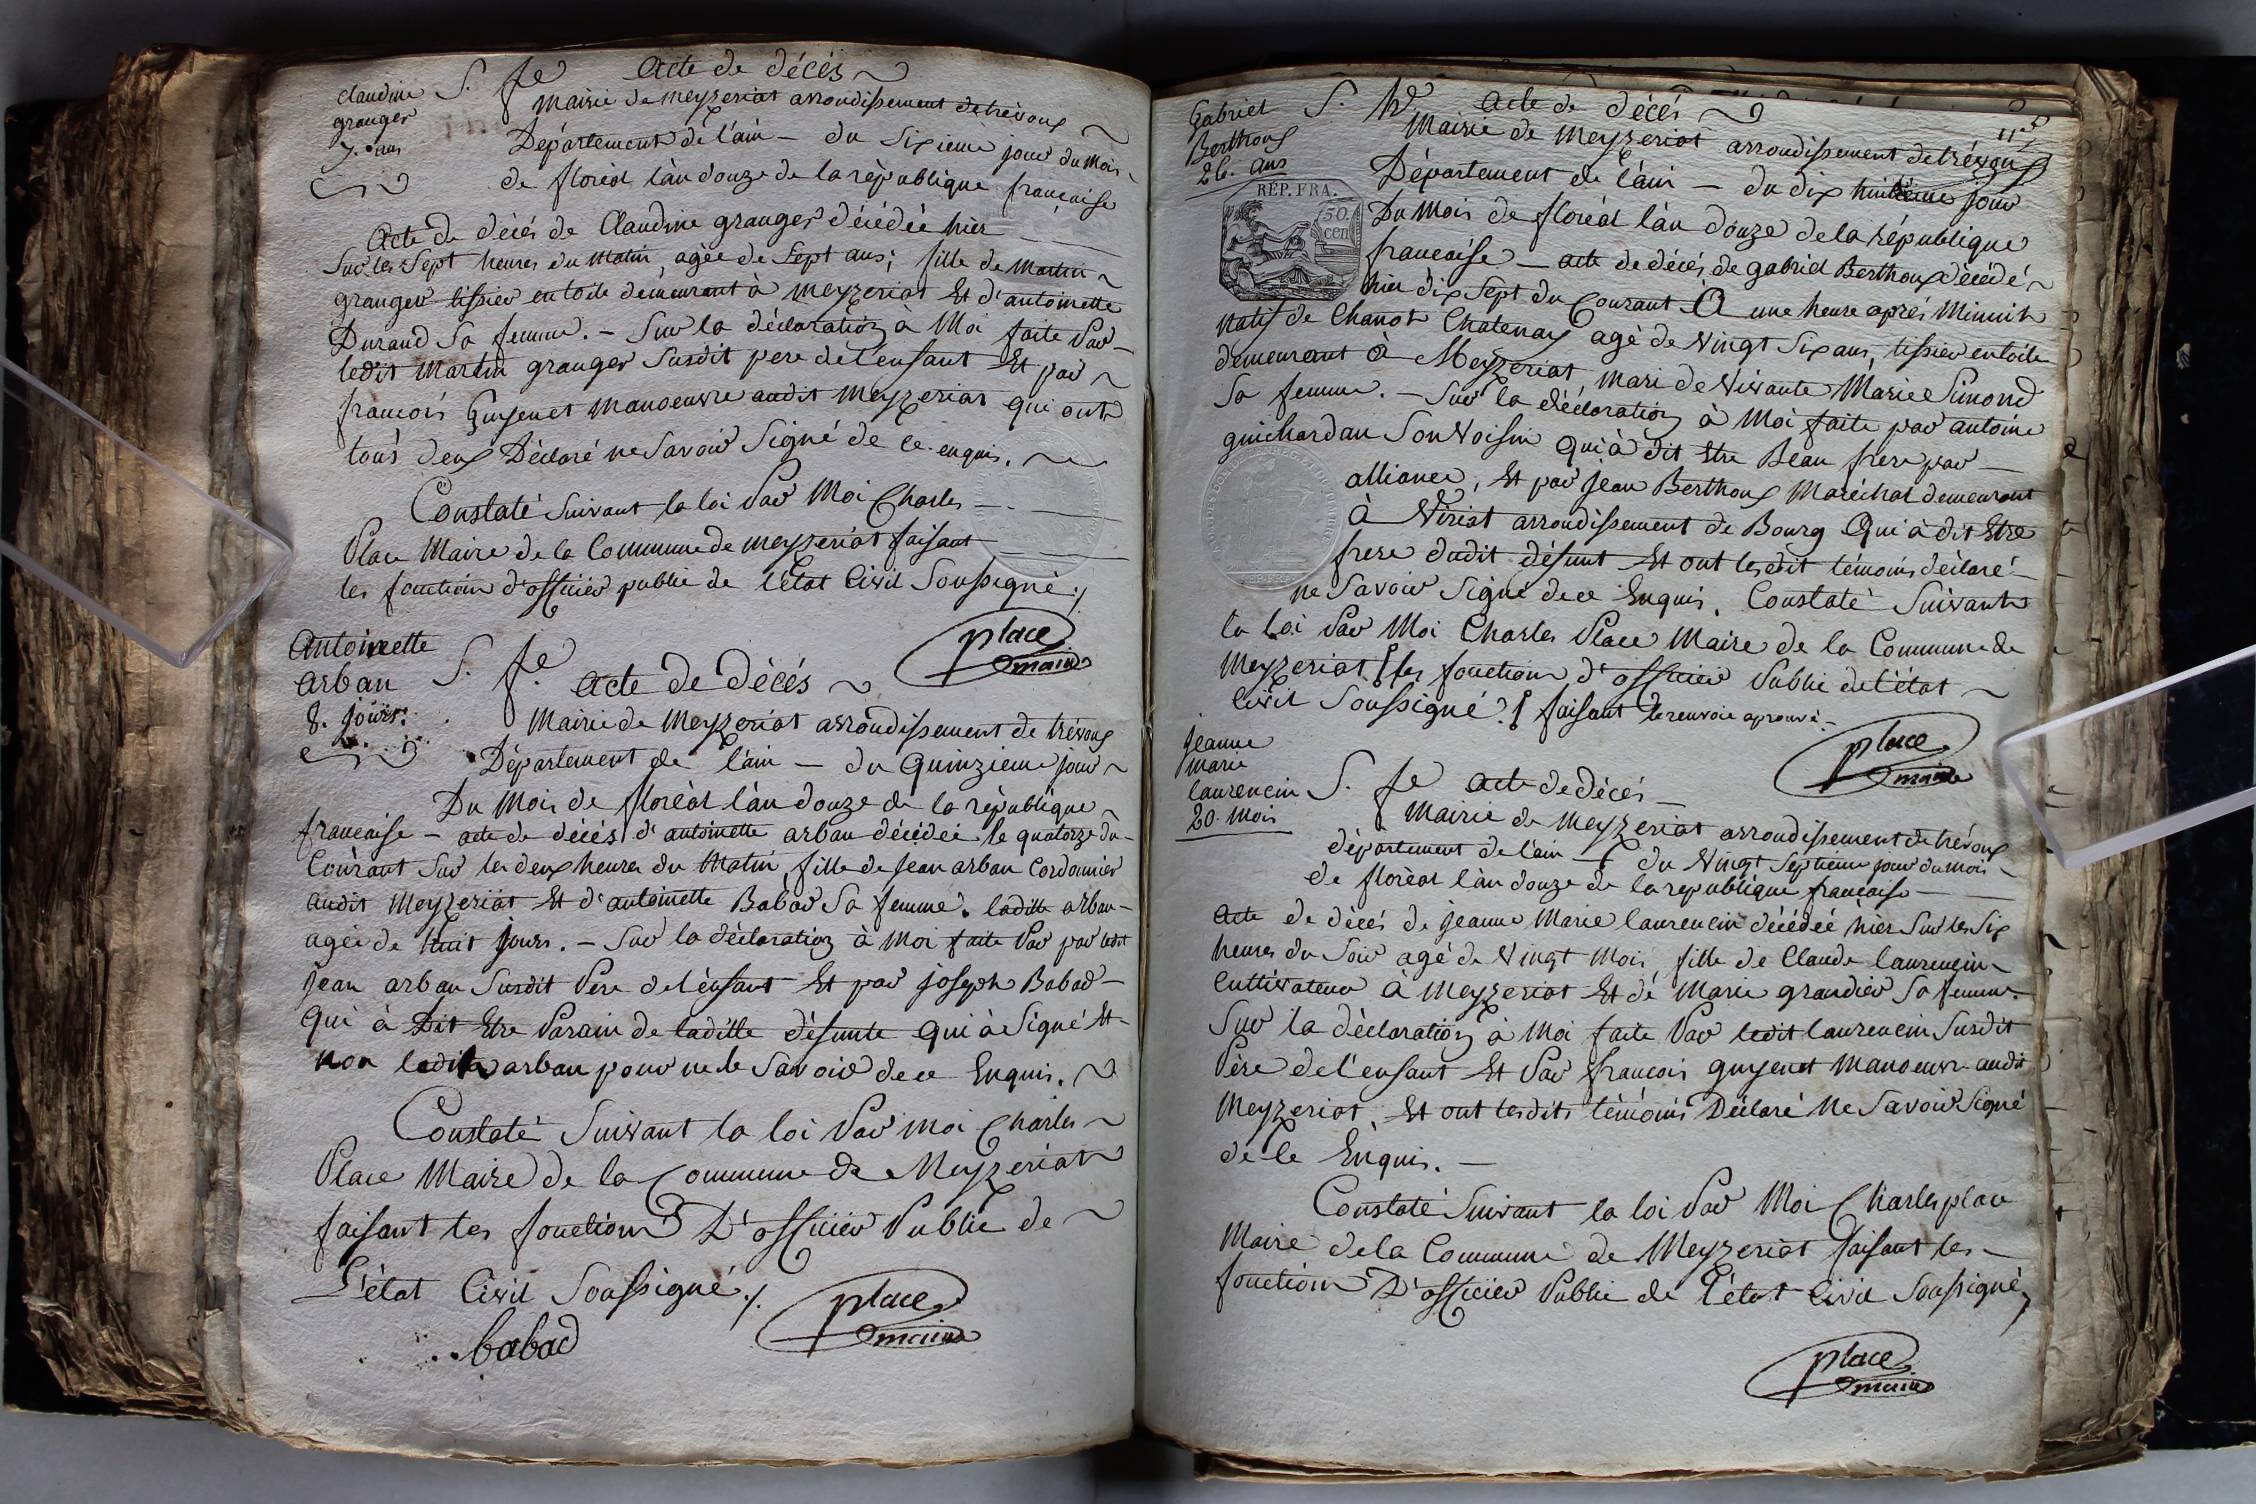 Claudine
granger
7. ans
S. fe Acte de décés
Mairie de meyzeriat arrondissement de trévoux
Département de l'ain — du sixieme jour du mois
de floréal l'an douze de la république française
Acte de décés de Claudine granger décédée hier
sur les sept heures du matin, agée de sept ans; fille de martin
granger tissier en toile demeurant à meyzeriat Et d'antoinette
Durand sa femme. — Sur la déclaration à Moi faite Par
ledit Martin granger susdit pere de l'enfant Et par
francois Guyenet manoeuvre audit meyzeriat qui ont
tous deux Déclaré ne savoir signé de ce enquis.
Constaté suivant la loi Par Moi Charles
Place Maire de la Commune de meyzeriat faisant
les fonction d'officier public de l'état Civil Soussigné ./.
Place
maire
Antoinette
arban
8. jours.
S. fe. Acte de Décés
Mairie de Meyzeriat arrondissement de trévoux
Département de l'ain — du Quinzieme jour
Du Mois de floréal l'an douze de la république
francaise — acte de décés d'antoinette arban décédée le quatorze du
Courant sur les deux heures du Matin, fille de Jean arban Cordonnier
audit Meyzeriat Et d'antoinette Babad sa femme. ladite arban
agée de huit jours. — Sur la déclaration à Moi faite Par par ledit
Jean arban susdit Pere de l'enfant Et par joseph Babad
Qui à Dit Etre Parain de ladite défunte Qui à Signé Et
non ledit arban pour ne le savoir de ce Enquis.
Constaté Suivant la loi Par Moi Charles
Place Maire de la Commune de Meyzeriat
faisant les fonctions D'officier Public de
L'état Civil Soussigné ./.
babad
Place
maire
Gabriel
Berthoux
26. ans
S. h. Acte de Décés
Mairie de Meyzeriat arrondissement de trévoux
Département de l'ain — du dix huitieme jour
RÉP. FRA.
50
cen
Du Mois de floréal l'an douze de la république
francaise — acte de décés de gabriel Berthoux décédé
hier dix Sept du Courant à une heure aprés Minuit
natif de Chanot Chatenay agé de Vingt Six ans, tissier en toile
demeurant à Meyzeriat, Mari de Vivante Marie Simond
sa femme. — Sur la déclaration à Moi faite par antoine
guichardan Son Voisin Qui à dit Etre Beau frere par
alliance, Et par Jean Berthoux Maréchal demeurant
à Viriat arrondissement de Bourg Qui à dit Etre
frere dudit défunt Et ont lesdit témoins déclaré
ne Savoir Signé de ce Enquis. Constaté Suivant
la loi Par Moi Charles Place Maire de la Commune de
Meyzeriat les fonctions d'officier Public de l'état
Civil Soussigné ./. faisant le renvoie aprouvé
Place
maire
jeanne
marie
laurencin
20. mois
S. fe Acte de Décés
Mairie de Meyzeriat arrondissement de trévoux
département de l'ain — du Vingt Septieme jour du mois
de floréal l'an douze de la republique française
Acte de décés de jeanne Marie laurencin décédée hier Sur les Six
heures du Soir agé de Vingt Mois, fille de Claude laurencin
Cultivateur à Meyzeriat Et de Marie grandier sa femme.
Sur la déclaration à Moi faite Par ledit laurencin Susdit
Père de l'enfant Et Par francois guyenet manoeuvre audit
Meyzeriat, Et ont lesdits témoins Déclaré Ne Savoir Signé
de Ce Enquis.
Constaté Suivant la loi Par Moi Charles place
Maire de la Commune de Meyzeriat faisant les
fonctions D'officier Public de l'état Civil Soussigné
Place
maire